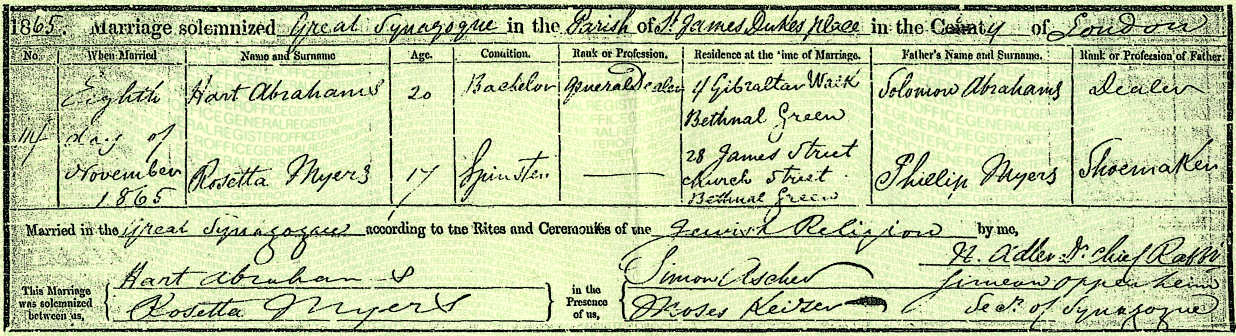 1865. Marriage solemnized Great Synagogue in the Parish of St. James Dukes place in the County of London
No. When Married Name and Surname Age. Condition. Rank or Profession. Residence at the time of Marriage. Father's Name and Surname. Rank or Profession of Father.
Eighth day of November 1865
Hart Abrahams 20 Bachelor General Dealer Gibraltar Walk Bethnal Green Solomon Abrahams Dealer
Rosetta Myers 17 Spinster 28 James Street Church Street Bethnal Green Phillip Myers Shoemaker
Married in the Great Synagogue according to the Rites and Ceremonies of the Jewish Religion by me,
N. Adler Dr. Chief Rabbi
This Marriage was solemnized between us,
Hart Abrahams
Rosetta Myers
in the Presence of us,
Simon Ascher
Moses Keizer
Simeon Oppenheim
Secy. of Synagogue